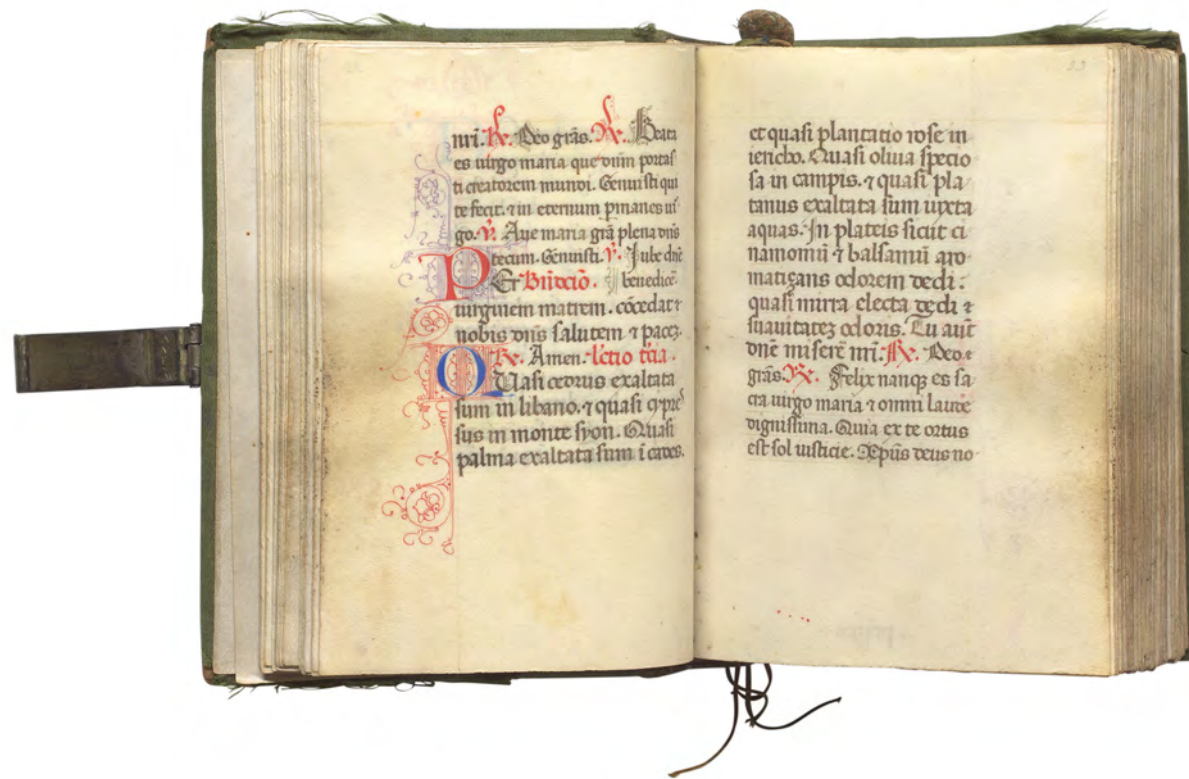 mī. ℟. Deo grās. ℟. Beata
es uirgo maria que dn̄m portas
ti creatorem mundi. Genuisti qui
te fecit. ⁊ in eternum pmanes uī
go. ℣. Aue maria grā plena dn̄s
tecum. Genuisti. ℣. Jube dn̄e
PEr Bn̄dcio. benedice.
uirginem matrem. cōcedat ⁊
nobis dn̄s salutem ⁊ pacez.
℟. Amen. lctio tcia.
QUasi cedrus exaltata
sum in libano. ⁊ quasi cypres
sus in monte syon. Quasi
palma exaltata sum ī cades.
et quasi plantatio rose in
iericho. Quasi oliua specio
sa in campis. ⁊ quasi pla
tanus exaltata sum iuxta
aquas. In plateis sicut ci
namomū ⁊ balsamū aro
matizans odorem dedi.
quasi mirra electa dedi ⁊
suauitatez odoris. Tu aut̄
dn̄e miserē mī. ℟. Deo
grās. ℟. Felix nanqꝫ es sa
cra uirgo maria ⁊ omni laude
dignissima. Quia ex te ortus
est sol iusticie. Xpūs deus no-